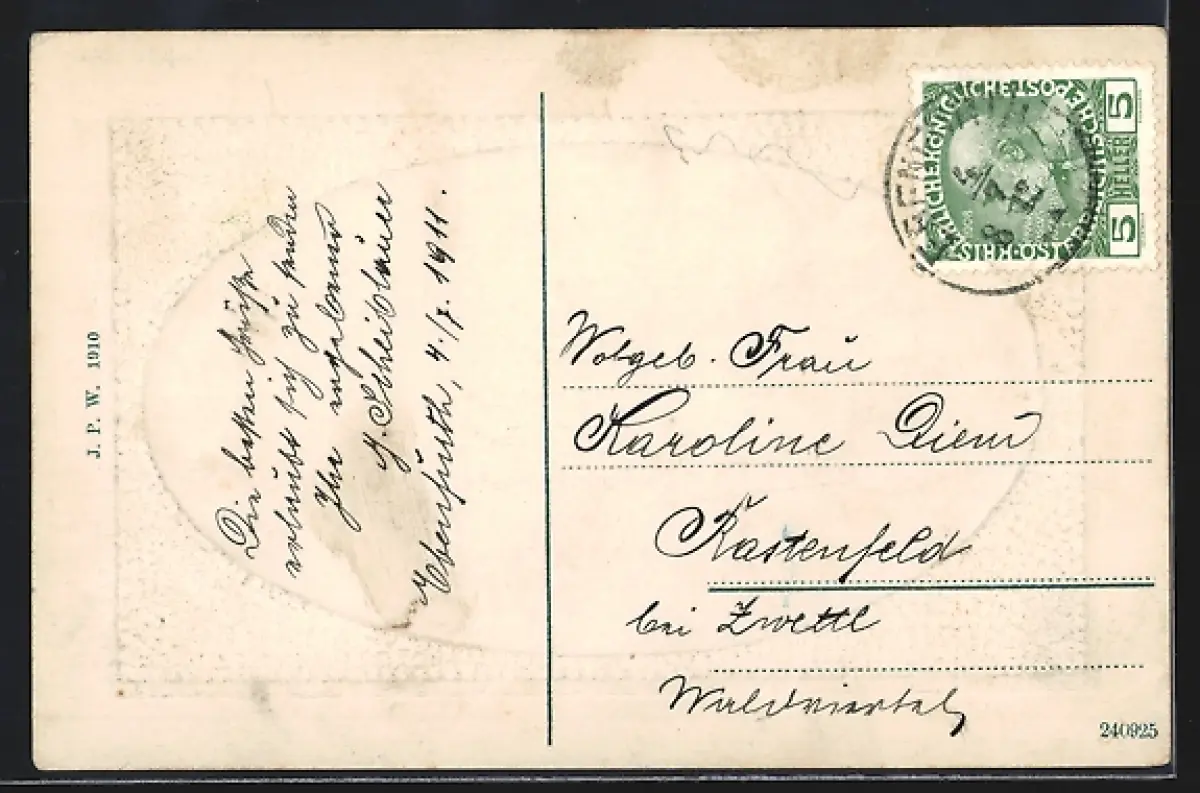 J. P. W. 1910
Die besten Grüße
erlaubt sich zu senden
Ihr ergebener
J. Scheiblauer
Ebenfurth, 4./7. 1911.
KAISERLICHE KÖNIGLICHE ÖSTERREICHISCHE POST
5 HELLER 5
Wolgeb. Frau
Karoline Diem
Rastenfeld
bei Zwettl
Waldviertel
240925